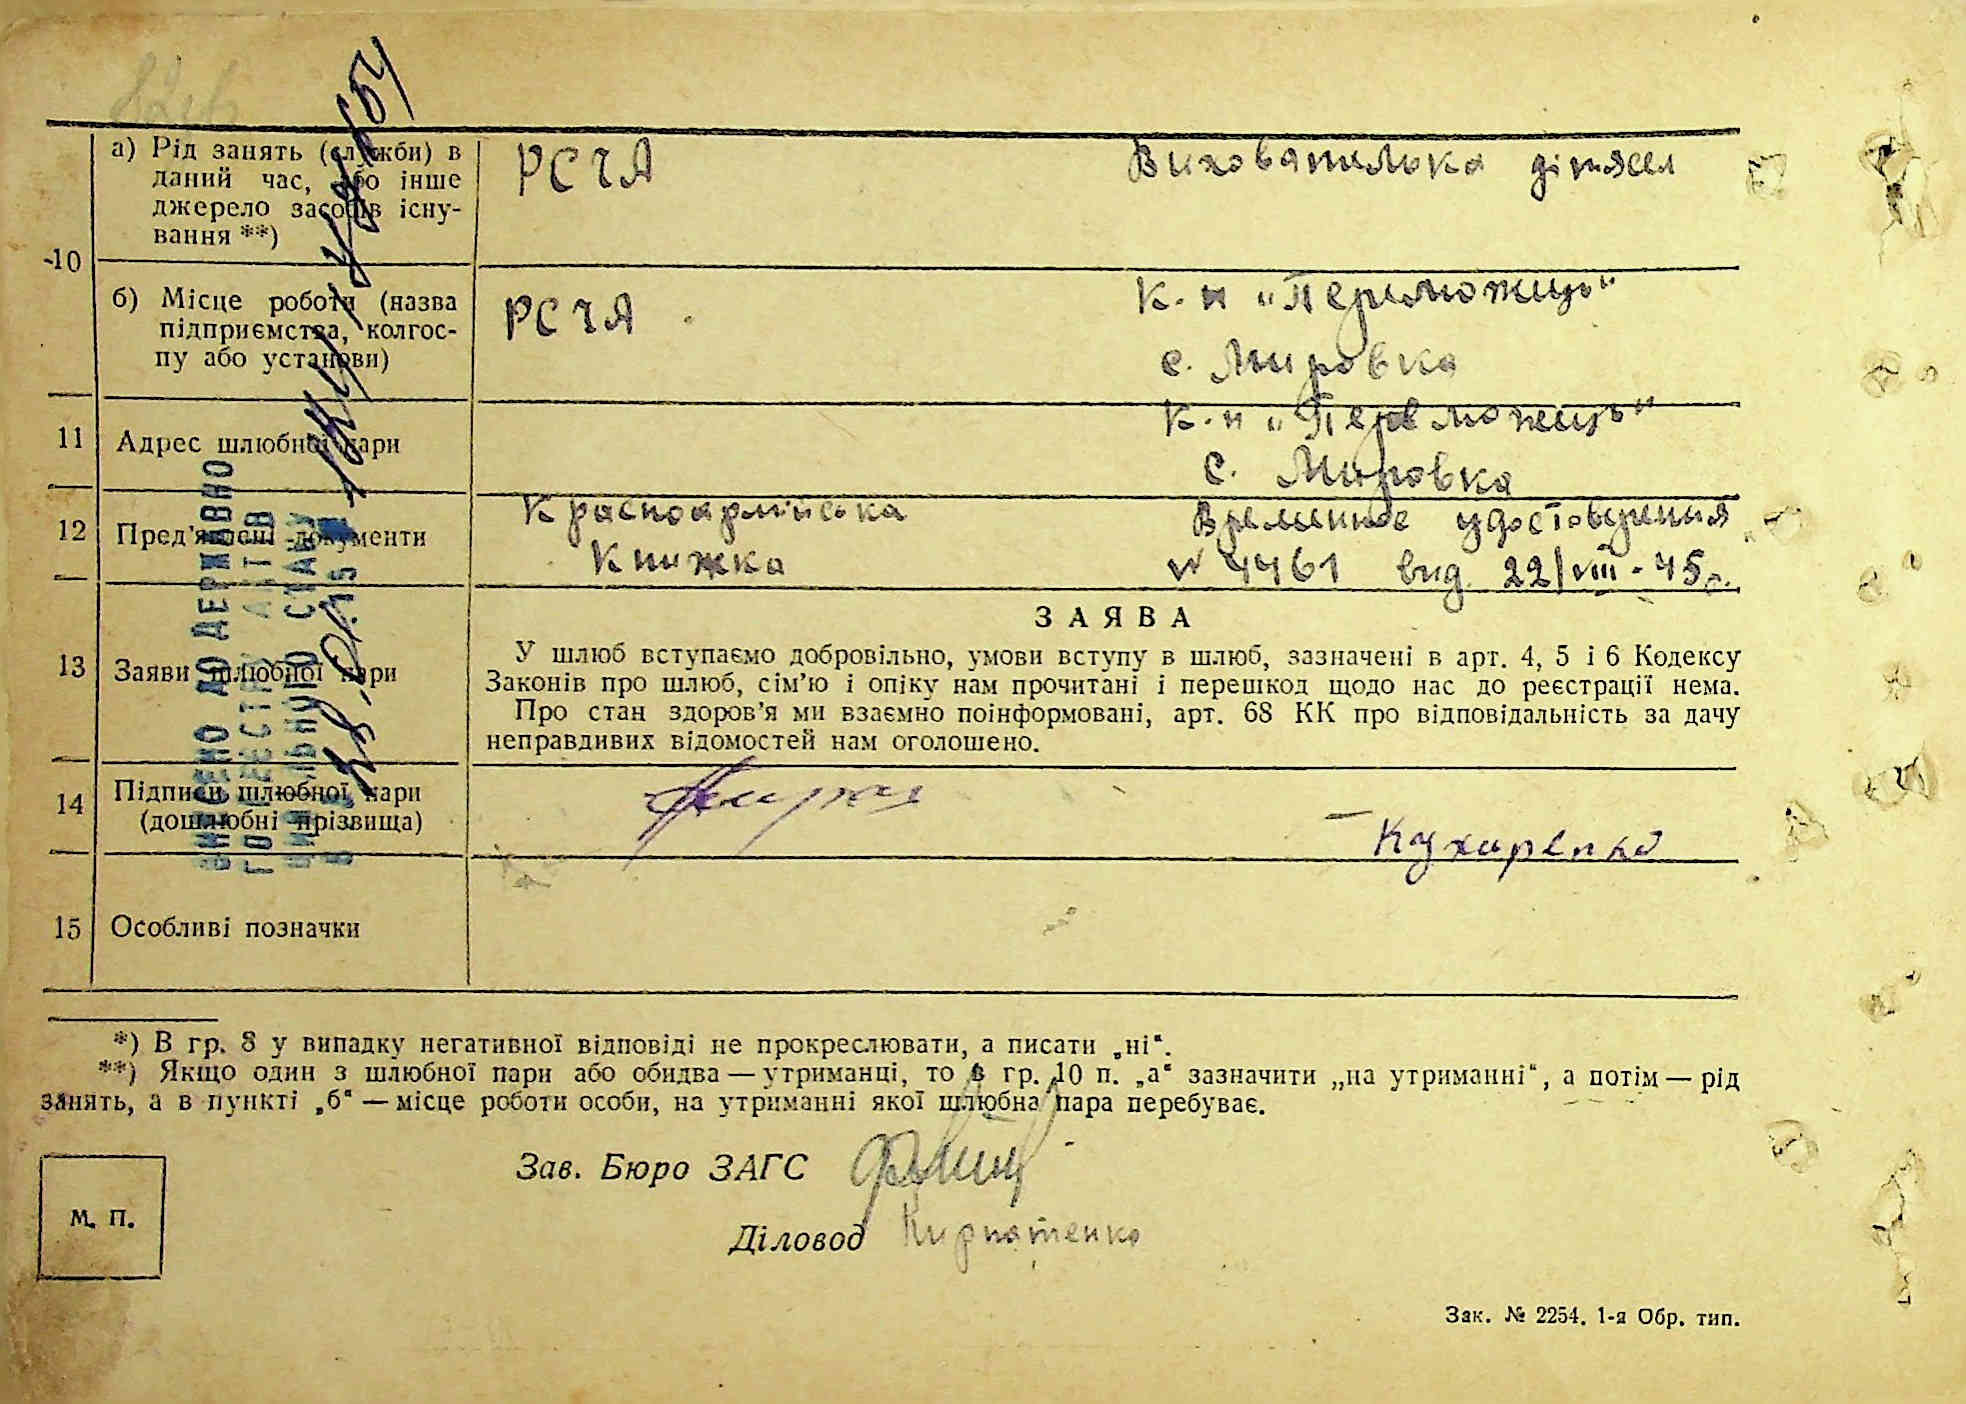 а) Рід занять (служби) в
даний час, або інше
джерело засобів існу-
вання **)
РСЧА
Вихователька дітясел
10
б) Місце роботи (назва
підприємства, колгос-
пу або установи)
РСЧА
к-п „Переможець“
с. Мировка
11
Адрес шлюбної пари
к-п „Переможець“
с. Мировка
12
Пред'явлені документи
Красноармійська
Книжка
Временное удостоверения
№ 4461 вид. 22/VIII-45 г.
13
Заяви шлюбної пари
ЗАЯВА
У шлюб вступаємо добровільно, умови вступу в шлюб, зазначені в арт. 4, 5 і 6 Кодексу
Законів про шлюб, сім’ю і опіку нам прочитані і перешкод щодо нас до реєстрації нема.
Про стан здоров’я ми взаємно поінформовані, арт. 68 КК про відповідальність за дачу
неправдивих відомостей нам оголошено.
14
Підписи шлюбної пари
(дошлюбні прізвища)
Кухаренко
15
Особливі позначки
ВНЕСЕНО ДО ДЕРЖАВНО
ГО РЕЄСТРУ АКТІВ
ЦИВІЛЬНОГО СТАНУ
*) В гр. 8 у випадку негативної відповіді не прокреслювати, а писати „ні“.
**) Якщо один з шлюбної пари або обидва — утриманці, то в гр. 10 п. „а“ зазначити „на утриманні“, а потім — рід
занять, а в пункті „б“ — місце роботи особи, на утриманні якої шлюбна пара перебуває.
Зав. Бюро ЗАГС
Діловод
М. П.
Зак. № 2254. 1-я Обр. тип.